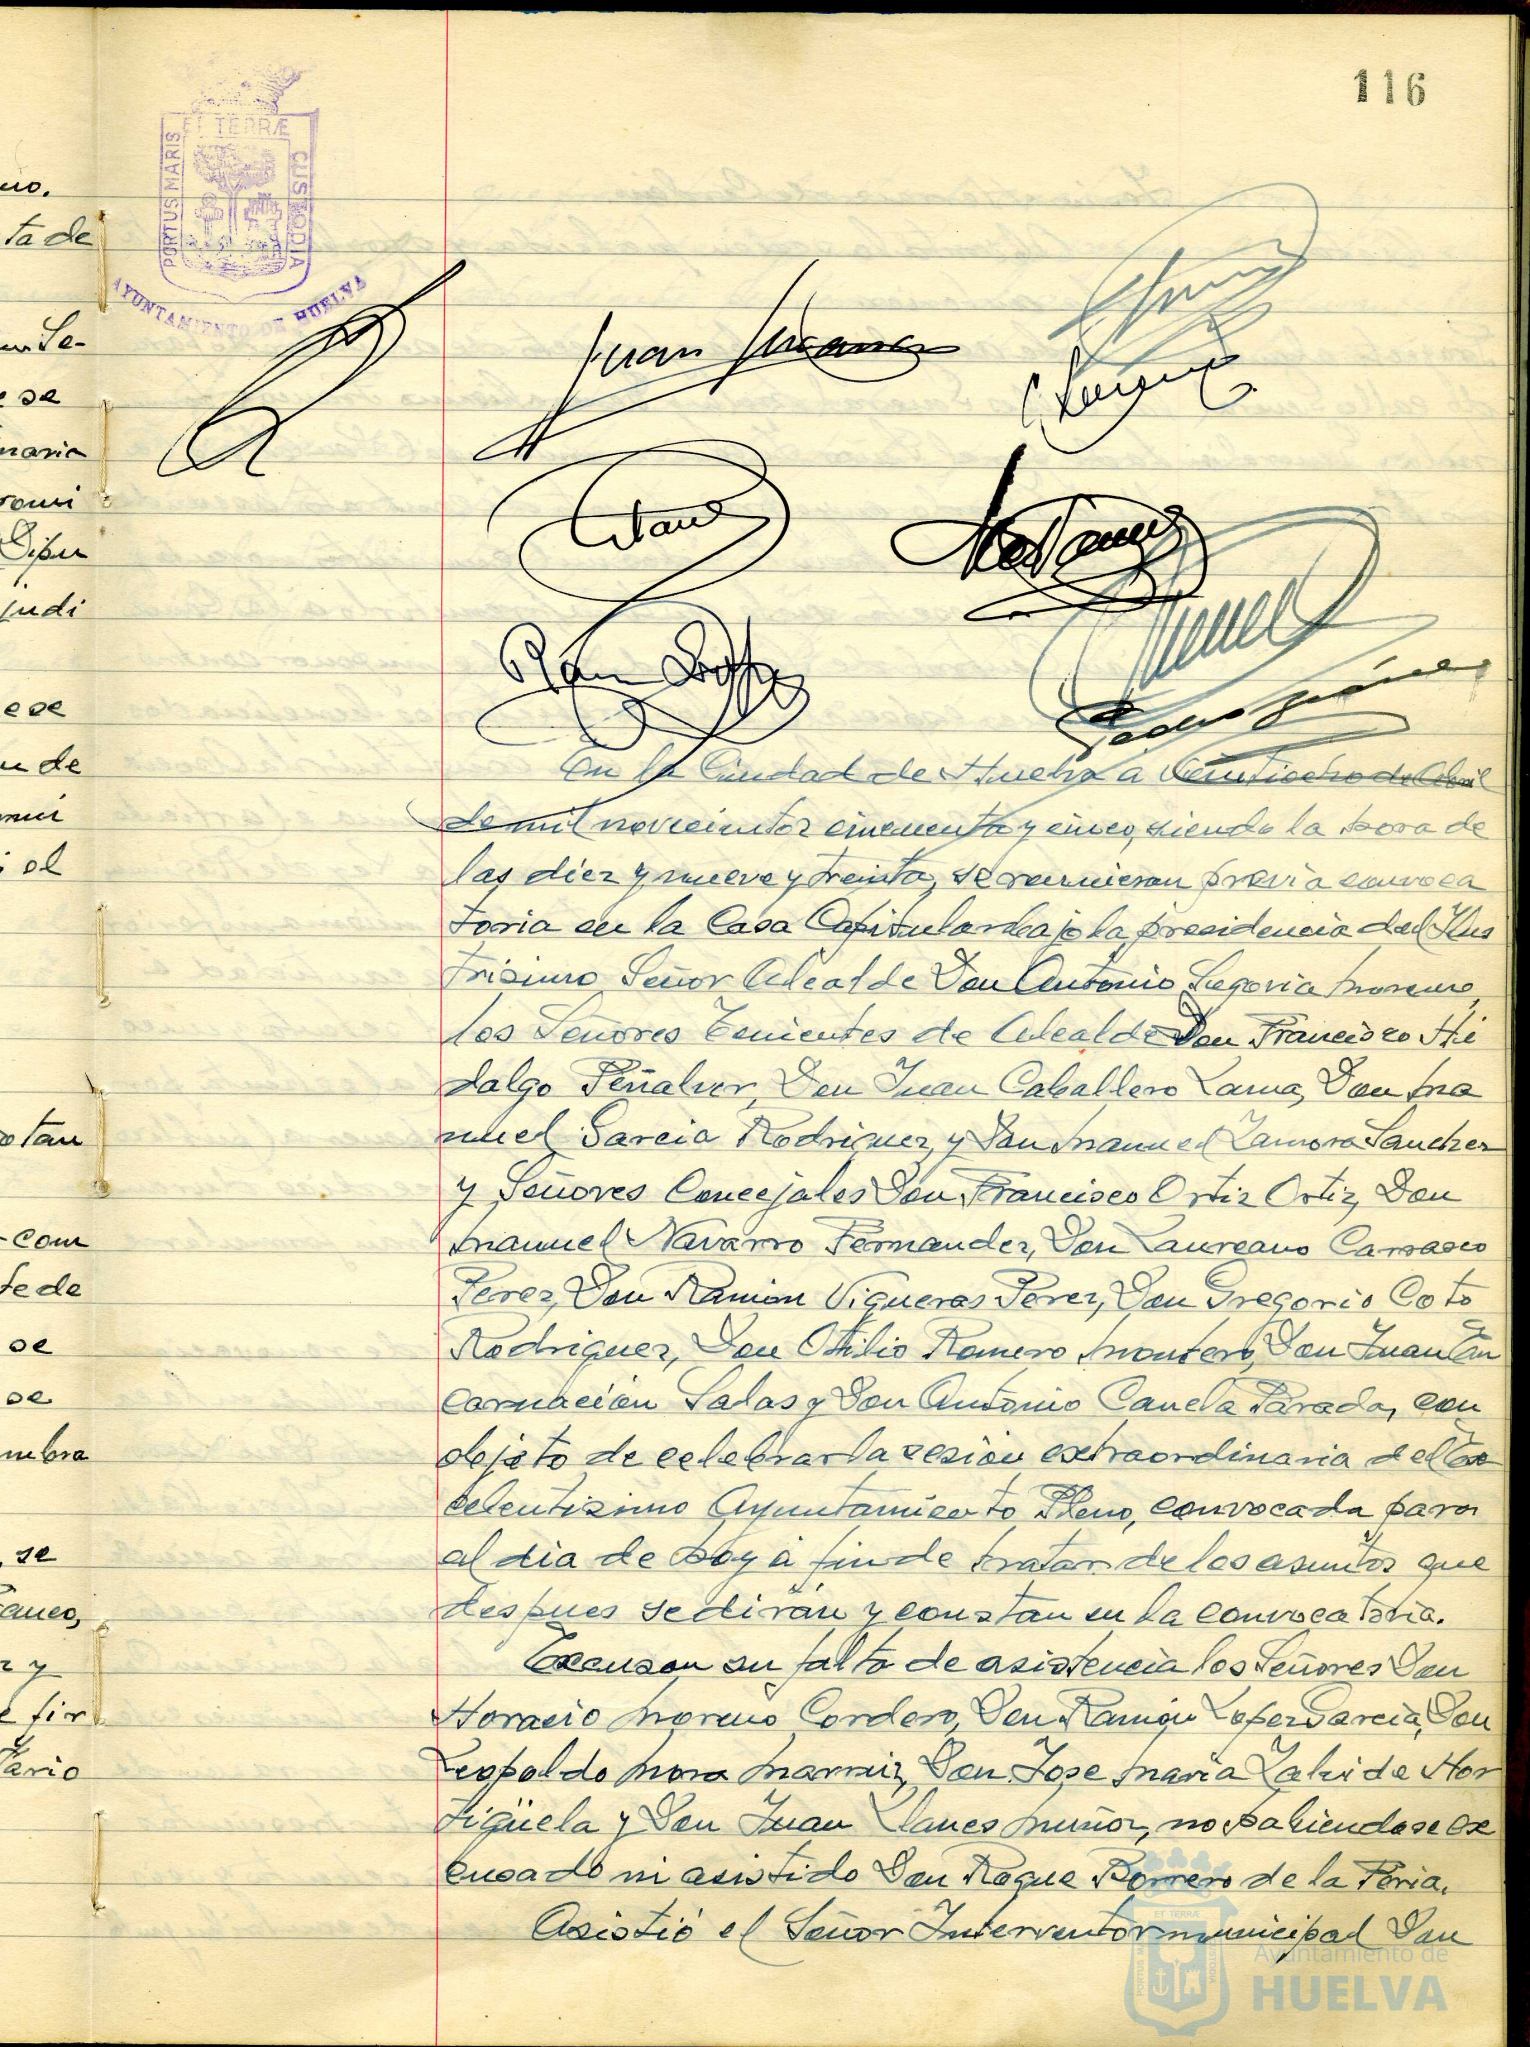 116
ET TERRÆ
PORTUS MARIS
CUSTODIA
AYUNTAMIENTO DE HUELVA
no.
ta de
Se-
e se
naria
Dipu
judi
ese
u de
i el
otan
-com
te de
se
se
mbra
, se
anco,
z y
e fir
tario
Juan
Pedro
En la Ciudad de Huelva a Veintiocho de Abril
de mil novecientos cincuenta y cinco, siendo la hora de
las diez y nueve y treinta, se reunieron previa convoca
toria en la Casa Capitular bajo la presidencia del Ilus
trisimo Señor Alcalde Don Antonio Segovia Moreno,
los Señores Tenientes de Alcalde Don Francisco Hi
dalgo Peñalver, Don Juan Caballero Lama, Don Ma
nuel Garcia Rodriguez, y Don Manuel Zamora Sanchez
y Señores Concejales Don Francisco Ortiz Ortiz, Don
Manuel Navarro Fernandez, Don Laureano Carrasco
Perez, Don Ramon Vigueras Perez, Don Gregorio Coto
Rodriguez, Don Otilio Romero Montero, Don Juan En
carnación Salas y Don Antonio Canela Parada, con
objeto de celebrar la sesión extraordinaria del Ex
celentisimo Ayuntamiento Pleno, convocada para
el dia de hoy á fin de tratar de los asuntos que
despues se dirán y constan en la convocatoria.
Excusan su falta de asistencia los Señores Don
Horacio Moreno Cordero, Don Ramón Lopez Garcia, Don
Leopoldo Mora Don Jose Maria de Hor
tigüela y Don Juan Llanes Muñoz, no habiendose ex
cusado ni asistido Don Roque Borrero de la Feria.
Asistió el Señor Interventor municipal Don
Ayuntamiento de
HUELVA